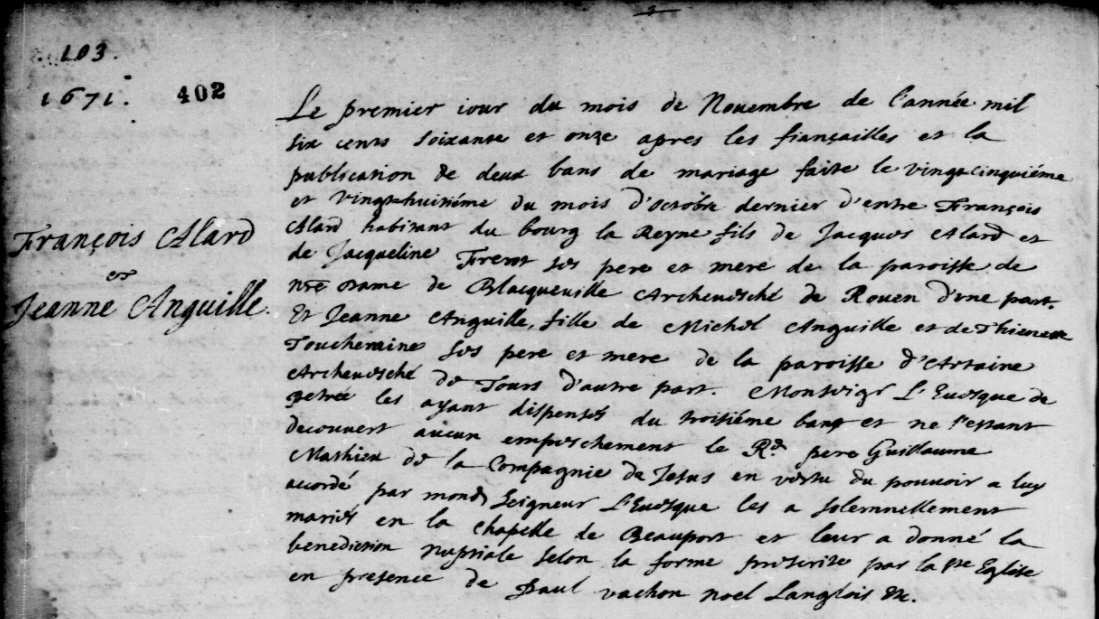 103.
1671. 402
François Alard
et
Jeanne Anguille.
Le premier iour du mois de Nouembre de l'année mil
six cents soixante et onze apres les fiançailles et la
publication de deux bans de mariage faite le vingtcinquiéme
et vingthuitiéme du mois d'octobre dernier d'entre François
Alard habitant du bourg la Reyne fils de Jacques Alard et
de Jacqueline Frerot ses pere et mere de la paroisse de
nre Dame de Blacqueuille Archeuesché de Rouen d'une part.
Et Jeanne Anguille, fille de Michel Anguille et de Thienette
Toucheraine ses pere et mere de la paroisse d'Artaine
Archeuesché de Tours d'autre part. Monseigr L'Euesque de
petrée les ayant dispensés du troisiéme bans et ne s'estant
decouvert aucun empeschement le Rd pere Guillaume
Mathieu de la Compagnie de Jesus en vertu du pouvoir a luy
acordé par mond Seigneur L'Euesque les a solemnellement
mariés en la chapelle de Beauport et leur a donné la
benediction nuptiale selon la forme prescrite par la ste Eglise
en presence de Paul vachon noel Langlois &c.